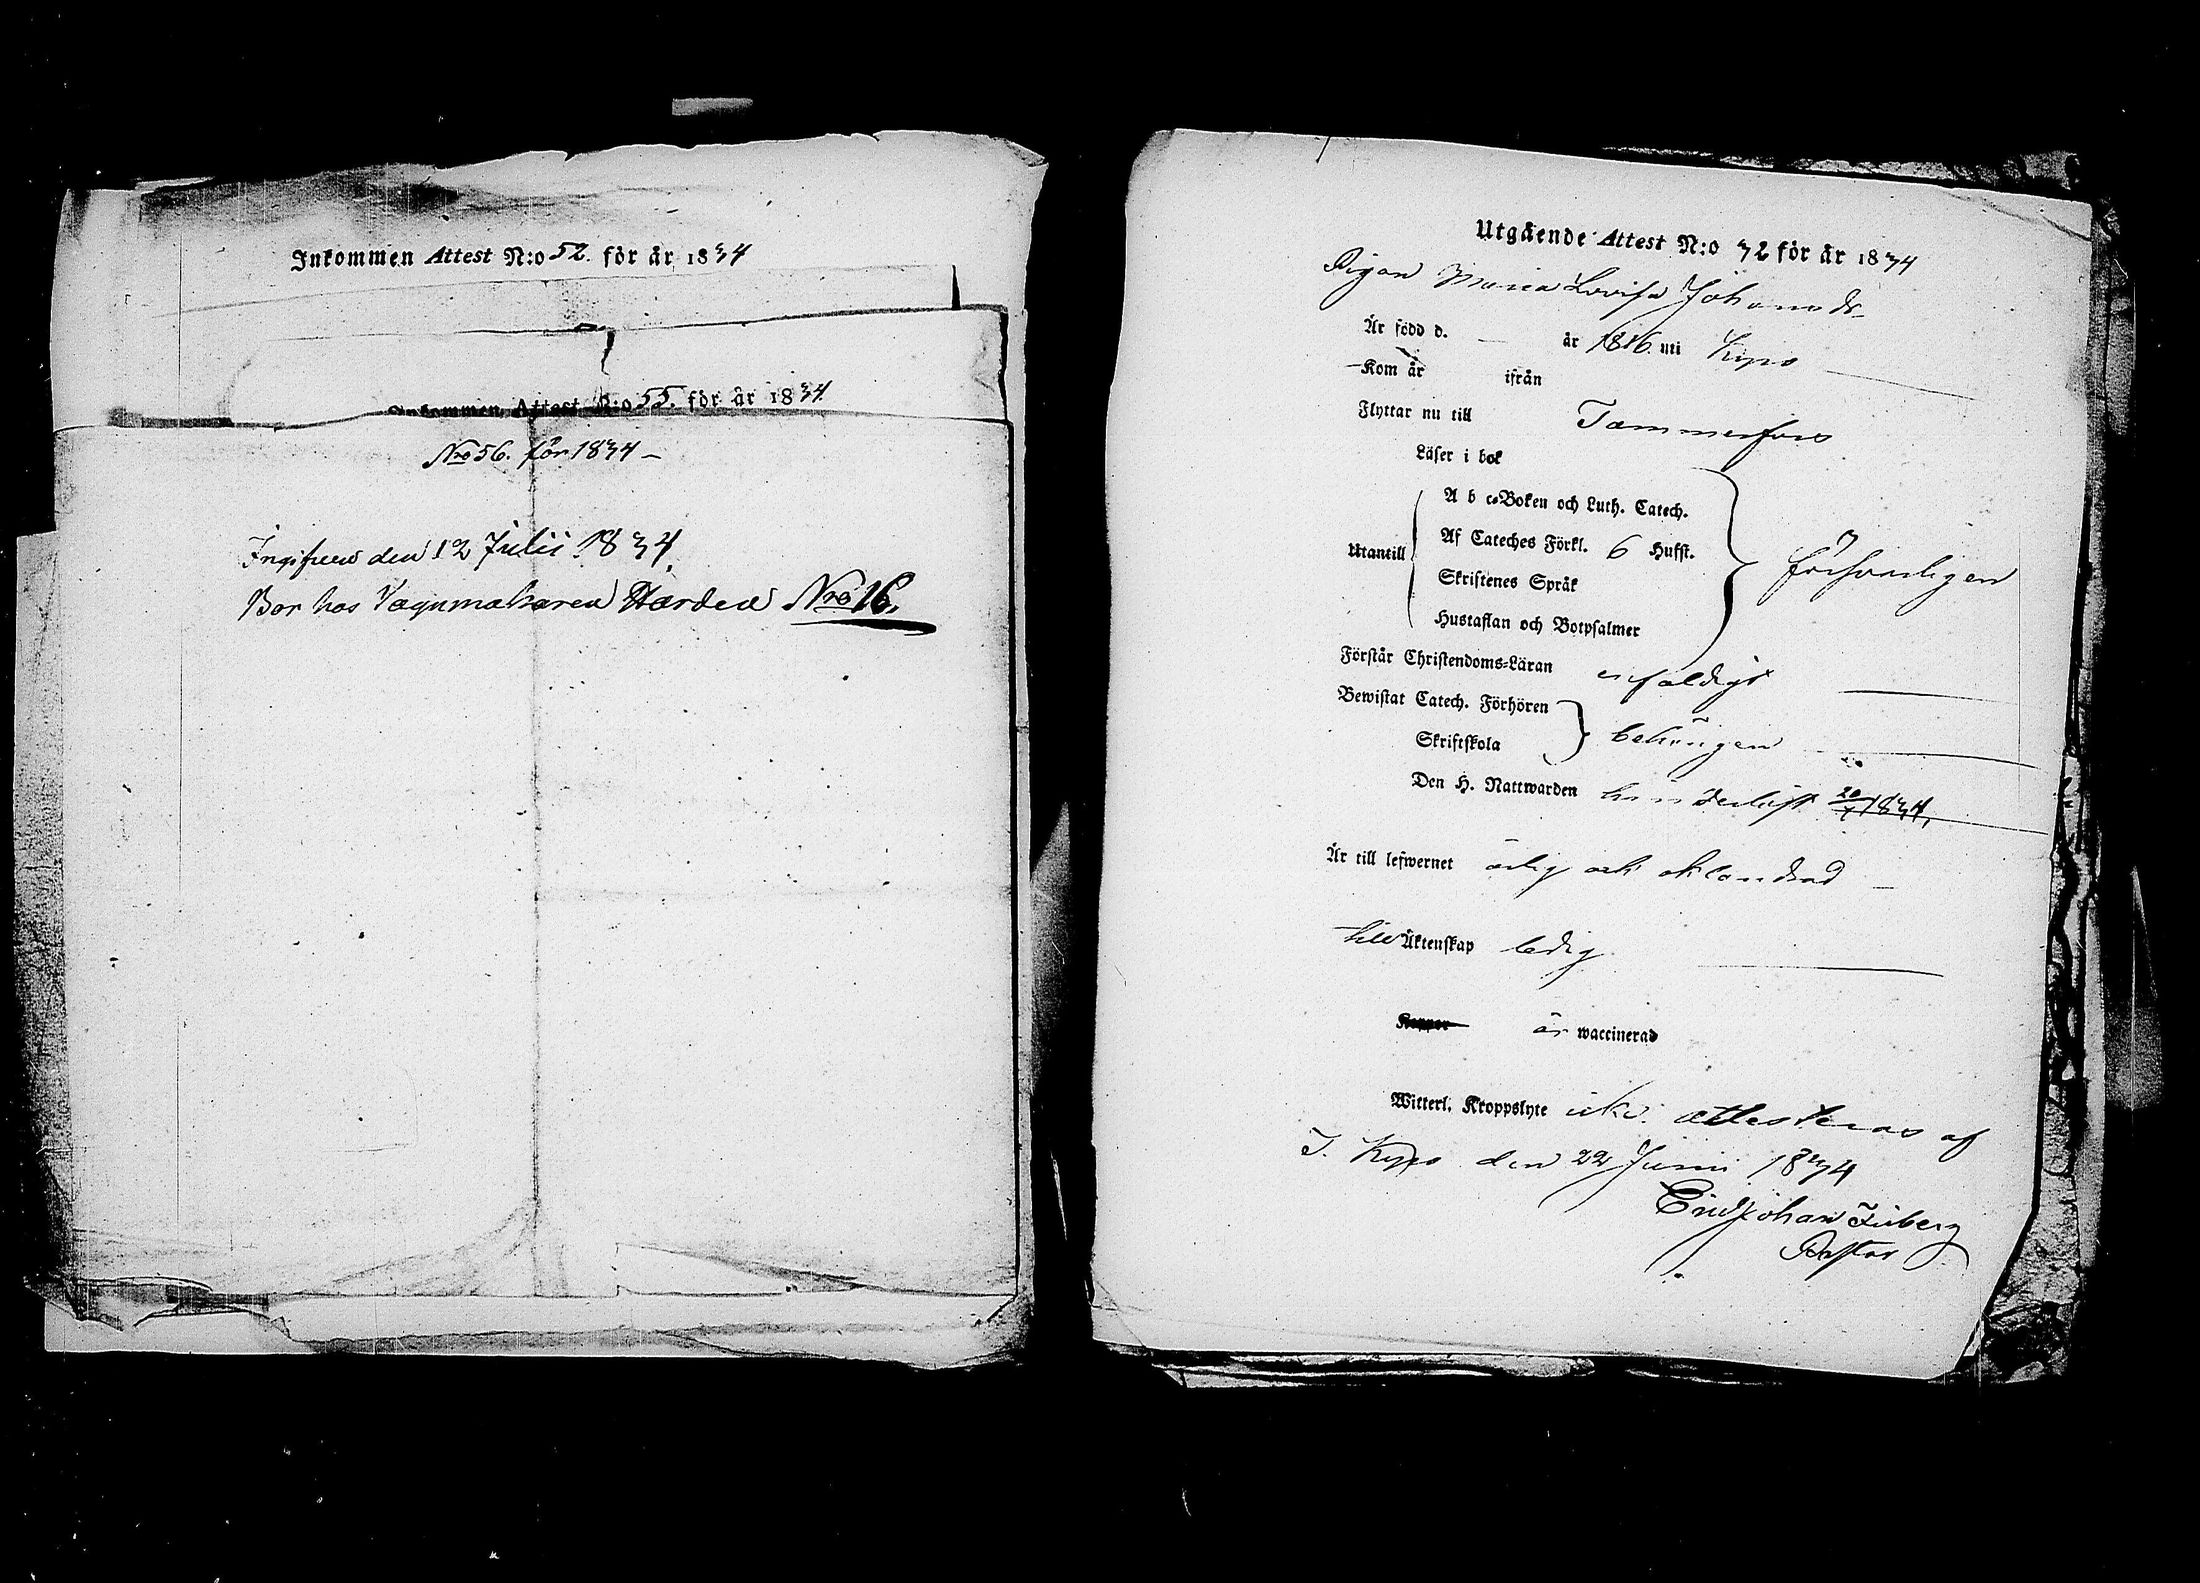 Inkommen Attest N:o 52. för år 1834
Inkommen Attest N:o 55. för år 1834
Nro 56. för 1834 –
Ingifven den 12 Julii 1834.
Bor hos Vagnmakaren Harden Nro 16.
Utgående Attest N:o 32 för år 1834
Pigan Maria Lovisa Johansdr
Är född d. — år 1816. uti Kyro
Kom år ifrån
Flyttar nu till Tammerfors
Läser i bok
A b c-Boken och Luth. Catech.
Utantill Af Cateches Förkl. 6 Hufst. försvarligen
Skriftenes Språk
Hustaflan och Botpsalmer
Förstår Christendoms-Läran enfaldigt
Bewistat Catech. Förhören
Skriftskola behörigen
Den H. Nattwarden 1834.
Är till lefwernet ärlig och oklandrad –
till Äktenskap ledig
Koppor är waccinerad
Witterl. Kroppslyte icke. attesteras af
I. Kyro den 22 Junii 1834
Johan
Pastor